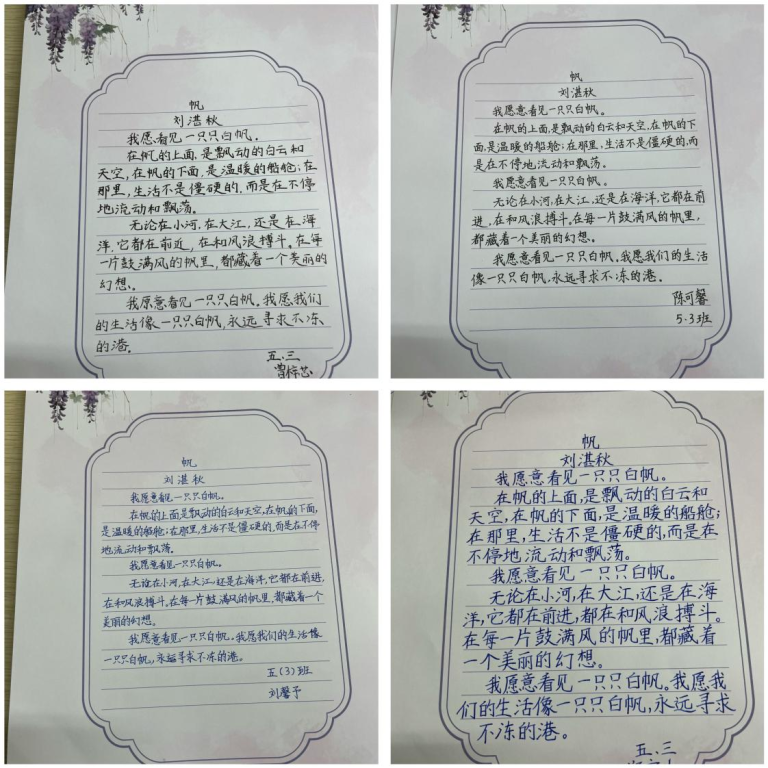 帆
刘湛秋
我愿意看见一只只白帆。
在帆的上面,是飘动的白云和
天空,在帆的下面,是温暖的船舱;在
那里,生活不是僵硬的,而是在不停
地流动和飘荡。
无论在小河,在大江,还是在海
洋,它都在前近,在和风浪搏斗。在每
一片鼓满风的帆里,都藏着一个美丽的
幻想。
我愿意看见一只只白帆。我愿我们
的生活像一只只白帆,永远寻求不冻
的港。
五.三
帆
刘湛秋
我愿意看见一只只白帆。
在帆的上面,是飘动的白云和天空,在帆的下
面,是温暖的船舱;在那里,生活不是僵硬的,而
是在不停地流动和飘荡。
我愿意看见一只只白帆。
无论在小河,在大江,还是在海洋,它都在前
进,在和风浪搏斗。在每一片鼓满风的帆里,
都藏着一个美丽的幻想。
我愿意看见一只只白帆。我愿我们的生活
像一只只白帆,永远寻求不冻的港。
陈可馨
5.3班
帆
刘湛秋
我愿意看见一只只白帆。
在帆的上面,是飘动的白云和天空,在帆的下面,
是温暖的船舱;在那里,生活不是僵硬的,而是在不停
地流动和飘荡。
我愿意看见一只只白帆。
无论在小河,在大江,还是在海洋,它都在前进,
在和风浪搏斗。在每一片鼓满风的帆里,都藏着一个
美丽的幻想。
我愿意看见一只只白帆。我愿我们的生活像
一只只白帆,永远寻求不冻的港。
五(3)班
刘馨予
帆
刘湛秋
我愿意看见一只只白帆。
在帆的上面,是飘动的白云和
天空,在帆的下面,是温暖的船舱;
在那里,生活不是僵硬的,而是在
不停地流动和飘荡。
我愿意看见一只只白帆。
无论在小河,在大江,还是在海
洋,它都在前进,都在和风浪搏斗。
在每一片鼓满风的帆里,都藏着
一个美丽的幻想。
我愿意看见一只只白帆。我愿我
们的生活像一只只白帆,永远寻求
不冻的港。
五.三